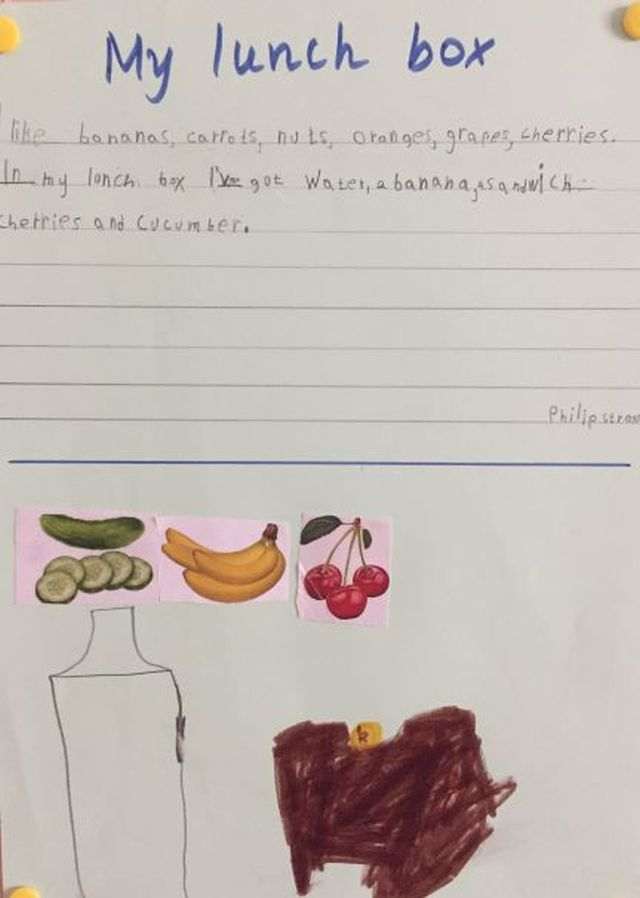 My lunch box
I like bananas, carrots, nuts, oranges, grapes, cherries.
In my lunch box I've got Water, a banana, a sandwich
cherries and cucumber.
Philip